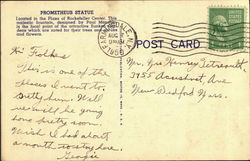 PROMETHEUS STATUE
Located in the Plaza of Rockefeller Center. This
majestic fountain, designed by Paul
is the focal point of the attractive Sunken
dens which are noted for their trees and
and flowers.
AUG
1956
POST CARD
Hi Folks
This is one of the
places I want to.
Betty here. Well
we will be going
home pretty soon.
Wish I had about
a month to stay here.
Georgie
Mr. & Mrs Henry Tetreault
3955 Acushnet Ave
New Bedford Mass.